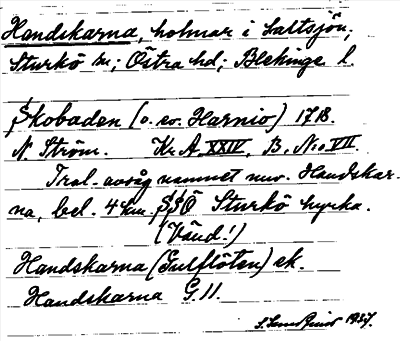 Handskarna, holmar i Saltsjön;
Sturkö sn; Östra hd; Blekinge l.
Skobaden (o. ev. Harnio) 1718.
N. Ström. Kr. A XXIV, B. No VII.
Trol. avsåg namnet nuv. Handskar-
na, bel. 4 km. SSÖ Sturkö kyrka.
(Vänd!)
Handskarna (Gulflöten) ek.
Handskarna G 11.
1937.